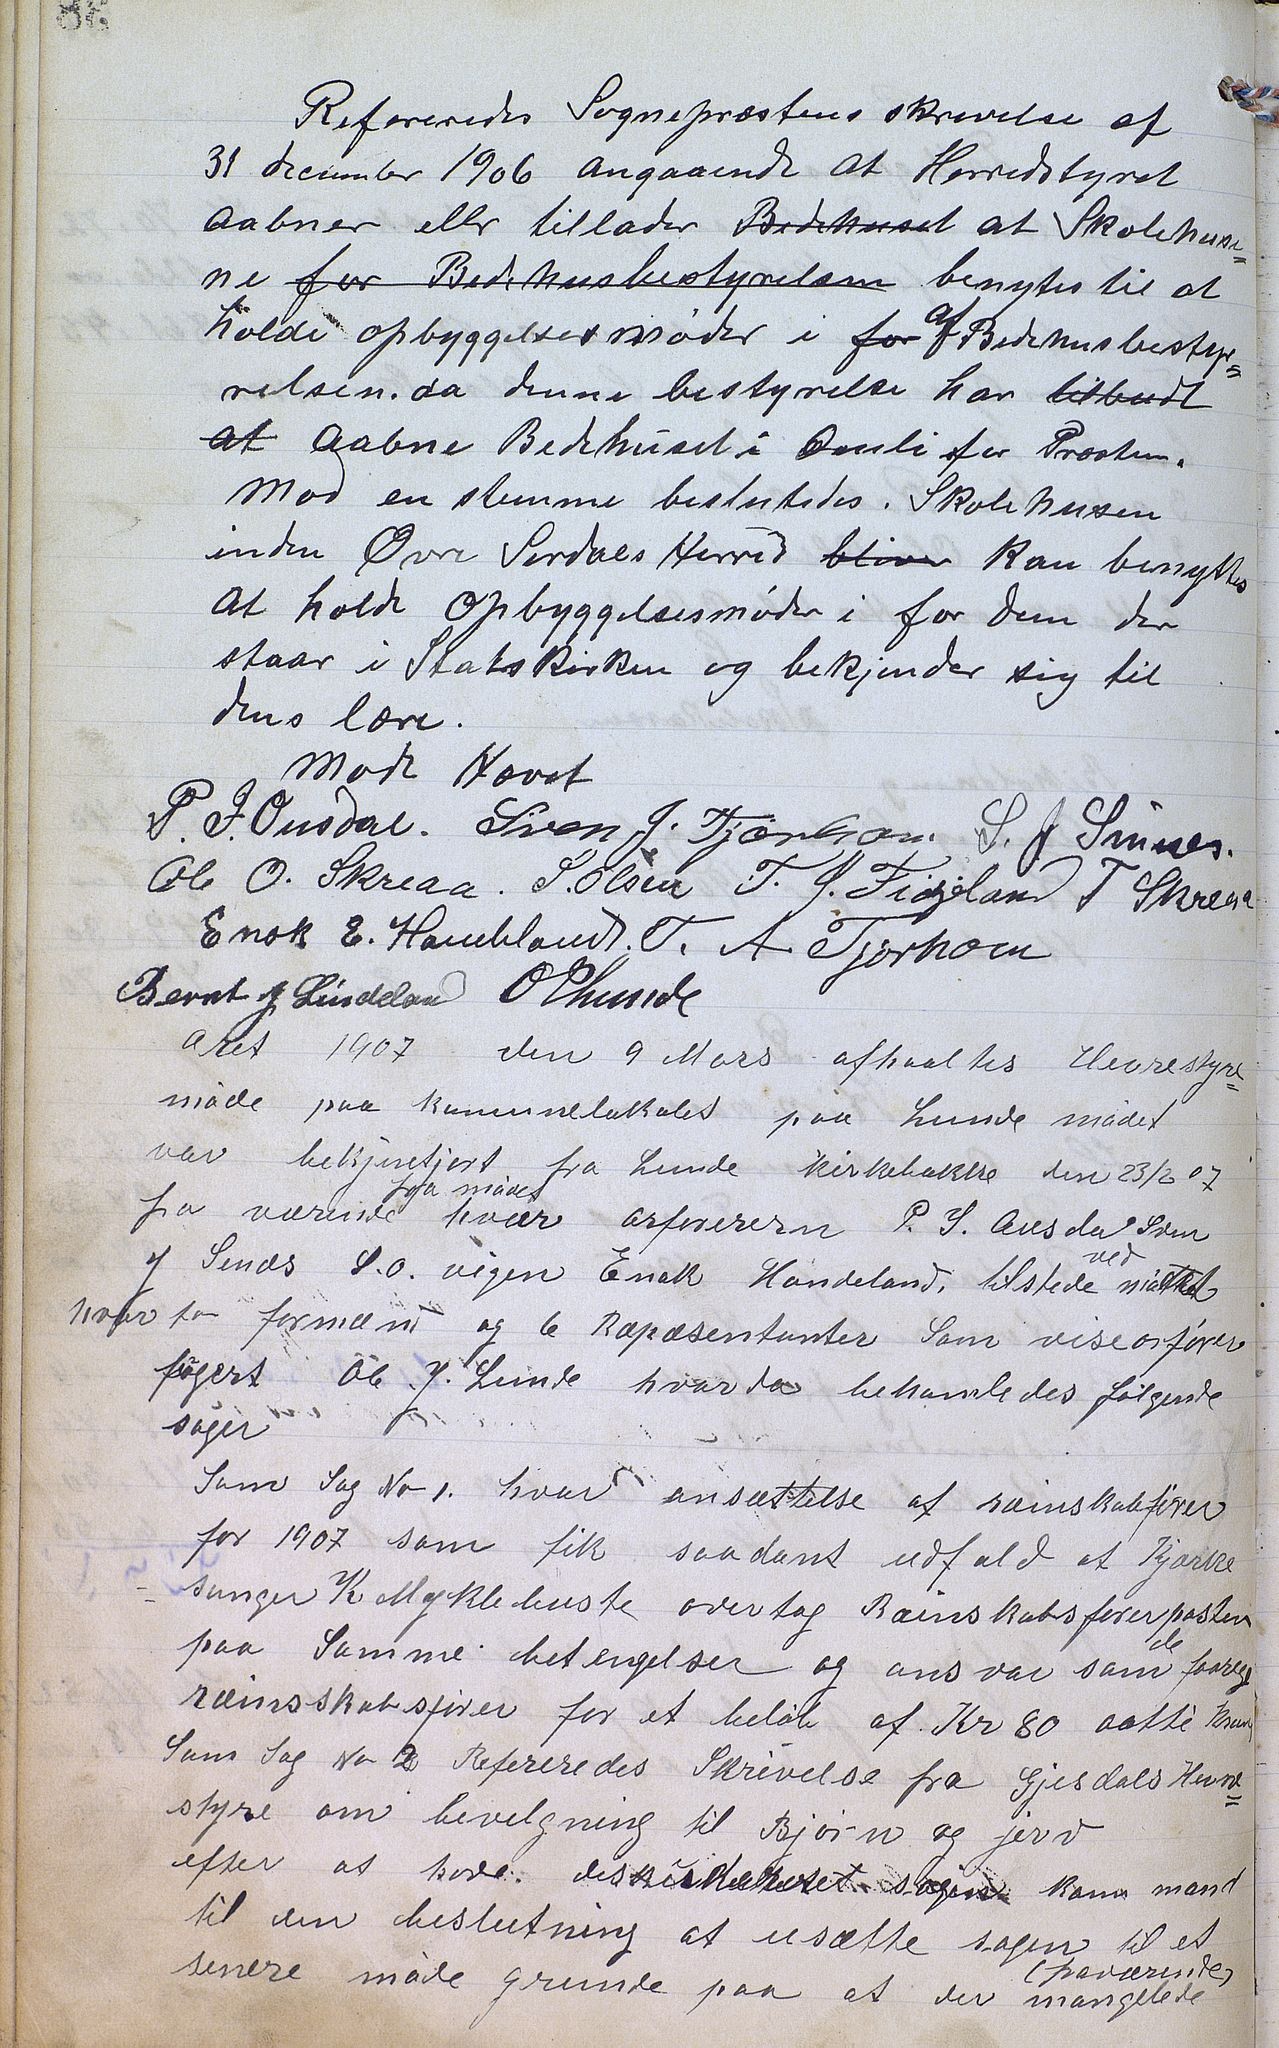 Refereredes Sognepræstens skrivelse af
31 december 1906 angaaende at Herredstyret
aabner eller tillader Bedehuset at Skolehuse=
ne for Bedehusbestyrelsen benytes til at
holde opbyggelsesmøder i for af Bedehusbesty=
relsen. da denne bestyrelse har tilbudt
at aabne Bedehuset i Ousli for Præsten.
Mod en stemme beslutedes. Skolehusen
inden Øvre Serdals Herred bliver kan benyttes
at holde opbyggelsesmøder i for dem der
staar i Statskirken og bekjender sig til
dens lære.
Møde Hævet
P. J. Ousdal. Sven J. Tjørhom. S. J Sinnes.
Ole O. Skreaa. S. Olsen T. J. Fidjeland T Skreaa
Enok E. Haneland. T. A. Tjørhom
Bernt J Lindeland O P Lunde
Aret 1907 den 9 Mars afhooltes Heorestyre=
møde paa komunelokalet paa Lunde mødet
var bekjentjort fra Lunde kirkebakke den 23/2 07
fra værende fra mødet hvær orførerern P. J. Ausdal Sven
J Senæs S.O. vigen Enok Handeland. tilstede ved mødet
hvar to formænn og 6 Ræpæsentanter Som viseorfører
fugert Ole J. Lunde hvorda behandledes følgende
sager
Som Sag No 1. hvar ansættelse af ræinskabfører
for 1907 som fik saadant udfald at Kjærke
sanger K Myklebuste overtog Ræinskabsførerposten
paa Samme betengelser og ansvar som de foorege
ræinsskabsfører for et beløb af Kr 80 aatti Kron
Som Sag No 2 Refereredes Skrivelse fra Gjesdals Herre=
styre om bevelgning til Bjørn og jerv
efter at hode. diskuteret sagen kom mand
til den beslutning at usætte sagen til et
senere møde grunde paa at der mangelede (paværende)